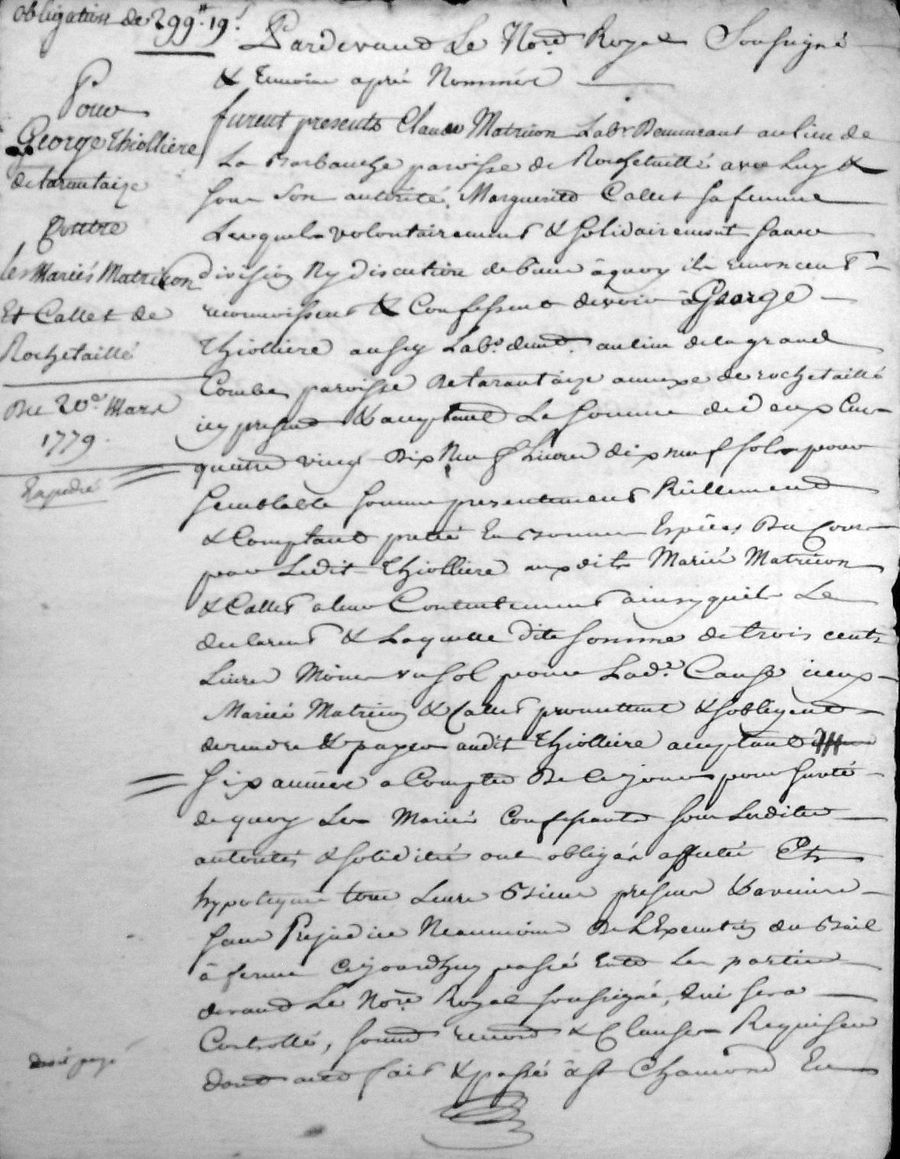 obligation de 299tt 19s
Pour
George Thiollière
de tarentaize
Contre
les Mariés Matricon
Et Callet de
Rochetaillé
Du 20e Mars
1779
Expedié
Pardevand Le Nore Royal Soussigné
& temoins après Nommés
furent presents Claude Matricon Labr Demeurant au lieu de
La Barbanche paroisse de Rochetaillé avec luy &
sous son autorité, Marguerite Callet sa femme
Lesquels volontairement & solidairement sans
division ny discution de biens àquoy ils renoncent
reconnoissent & Confessent devoir à George
Thiolliere aussy Labr demt au lieu de la grand
Combe paroisse de tarantaize annexe de rochetaillé
icy present & acceptant La somme de deux Cents
quatre vingt Dix Neuf Livres dix neuf sols pour
semblable somme presentement Réellement
& Comptant pretté En Bonnes Espèces Du Cours
par Ledit Thiolliere auxdits Mariés Matricon
& Callet a leur Contentement ainsy quils Le
declarent & Laquelle ditte somme de trois cents
Livres Moins un sol pour Lade Cause iceux
Mariés Matricon & Callet promettent & sobligent
de rendre & payer audit Thiolliere acceptant
six années a Compter De ce jour pour sureté
de quoy Les Mariés Confessants sous lesdites
autorités & solidité ont obligés affectés Et
hypotequé tous Leurs Biens presents & avenir
sans Prejudice Neanmoins De L'Execution du Bail
à ferme Cejourdhuy passé Entre Les parties
devand Le Nore Royal soussigné, qui sera
Controllé, soumis renond & Clauses Requises
dont acte fait & passé à St Chamond En